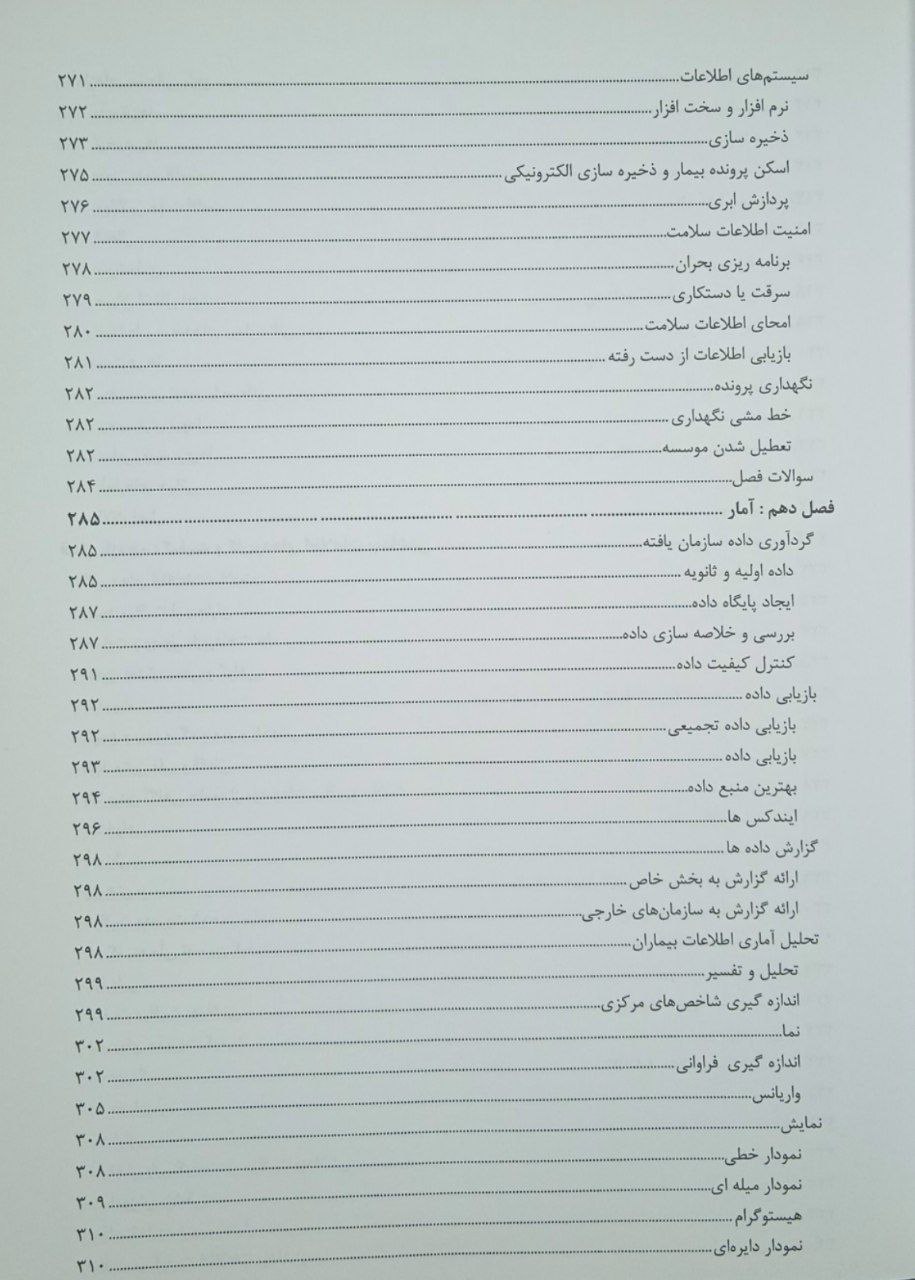 سیستم‌های اطلاعات ........ ۲۷۱
نرم افزار و سخت افزار ........ ۲۷۲
ذخیره سازی ........ ۲۷۳
اسکن پرونده بیمار و ذخیره سازی الکترونیکی ........ ۲۷۵
پردازش ابری ........ ۲۷۶
امنیت اطلاعات سلامت ........ ۲۷۷
برنامه ریزی بحران ........ ۲۷۸
سرقت یا دستکاری ........ ۲۷۹
امحای اطلاعات سلامت ........ ۲۸۰
بازیابی اطلاعات از دست رفته ........ ۲۸۱
نگهداری پرونده ........ ۲۸۲
خط مشی نگهداری ........ ۲۸۲
تعطیل شدن موسسه ........ ۲۸۲
سوالات فصل ........ ۲۸۴
فصل دهم : آمار ........ ۲۸۵
گردآوری داده سازمان یافته ........ ۲۸۵
داده اولیه و ثانویه ........ ۲۸۵
ایجاد پایگاه داده ........ ۲۸۷
بررسی و خلاصه سازی داده ........ ۲۸۷
کنترل کیفیت داده ........ ۲۹۱
بازیابی داده ........ ۲۹۲
بازیابی داده تجمیعی ........ ۲۹۲
بازیابی داده ........ ۲۹۳
بهترین منبع داده ........ ۲۹۴
ایندکس ها ........ ۲۹۶
گزارش داده ها ........ ۲۹۸
ارائه گزارش به بخش خاص ........ ۲۹۸
ارائه گزارش به سازمان‌های خارجی ........ ۲۹۸
تحلیل آماری اطلاعات بیماران ........ ۲۹۸
تحلیل و تفسیر ........ ۲۹۹
اندازه گیری شاخص‌های مرکزی ........ ۲۹۹
نما ........ ۳۰۲
اندازه گیری فراوانی ........ ۳۰۲
واریانس ........ ۳۰۵
نمایش ........ ۳۰۸
نمودار خطی ........ ۳۰۸
نمودار میله ای ........ ۳۰۹
هیستوگرام ........ ۳۱۰
نمودار دایره‌ای ........ ۳۱۰